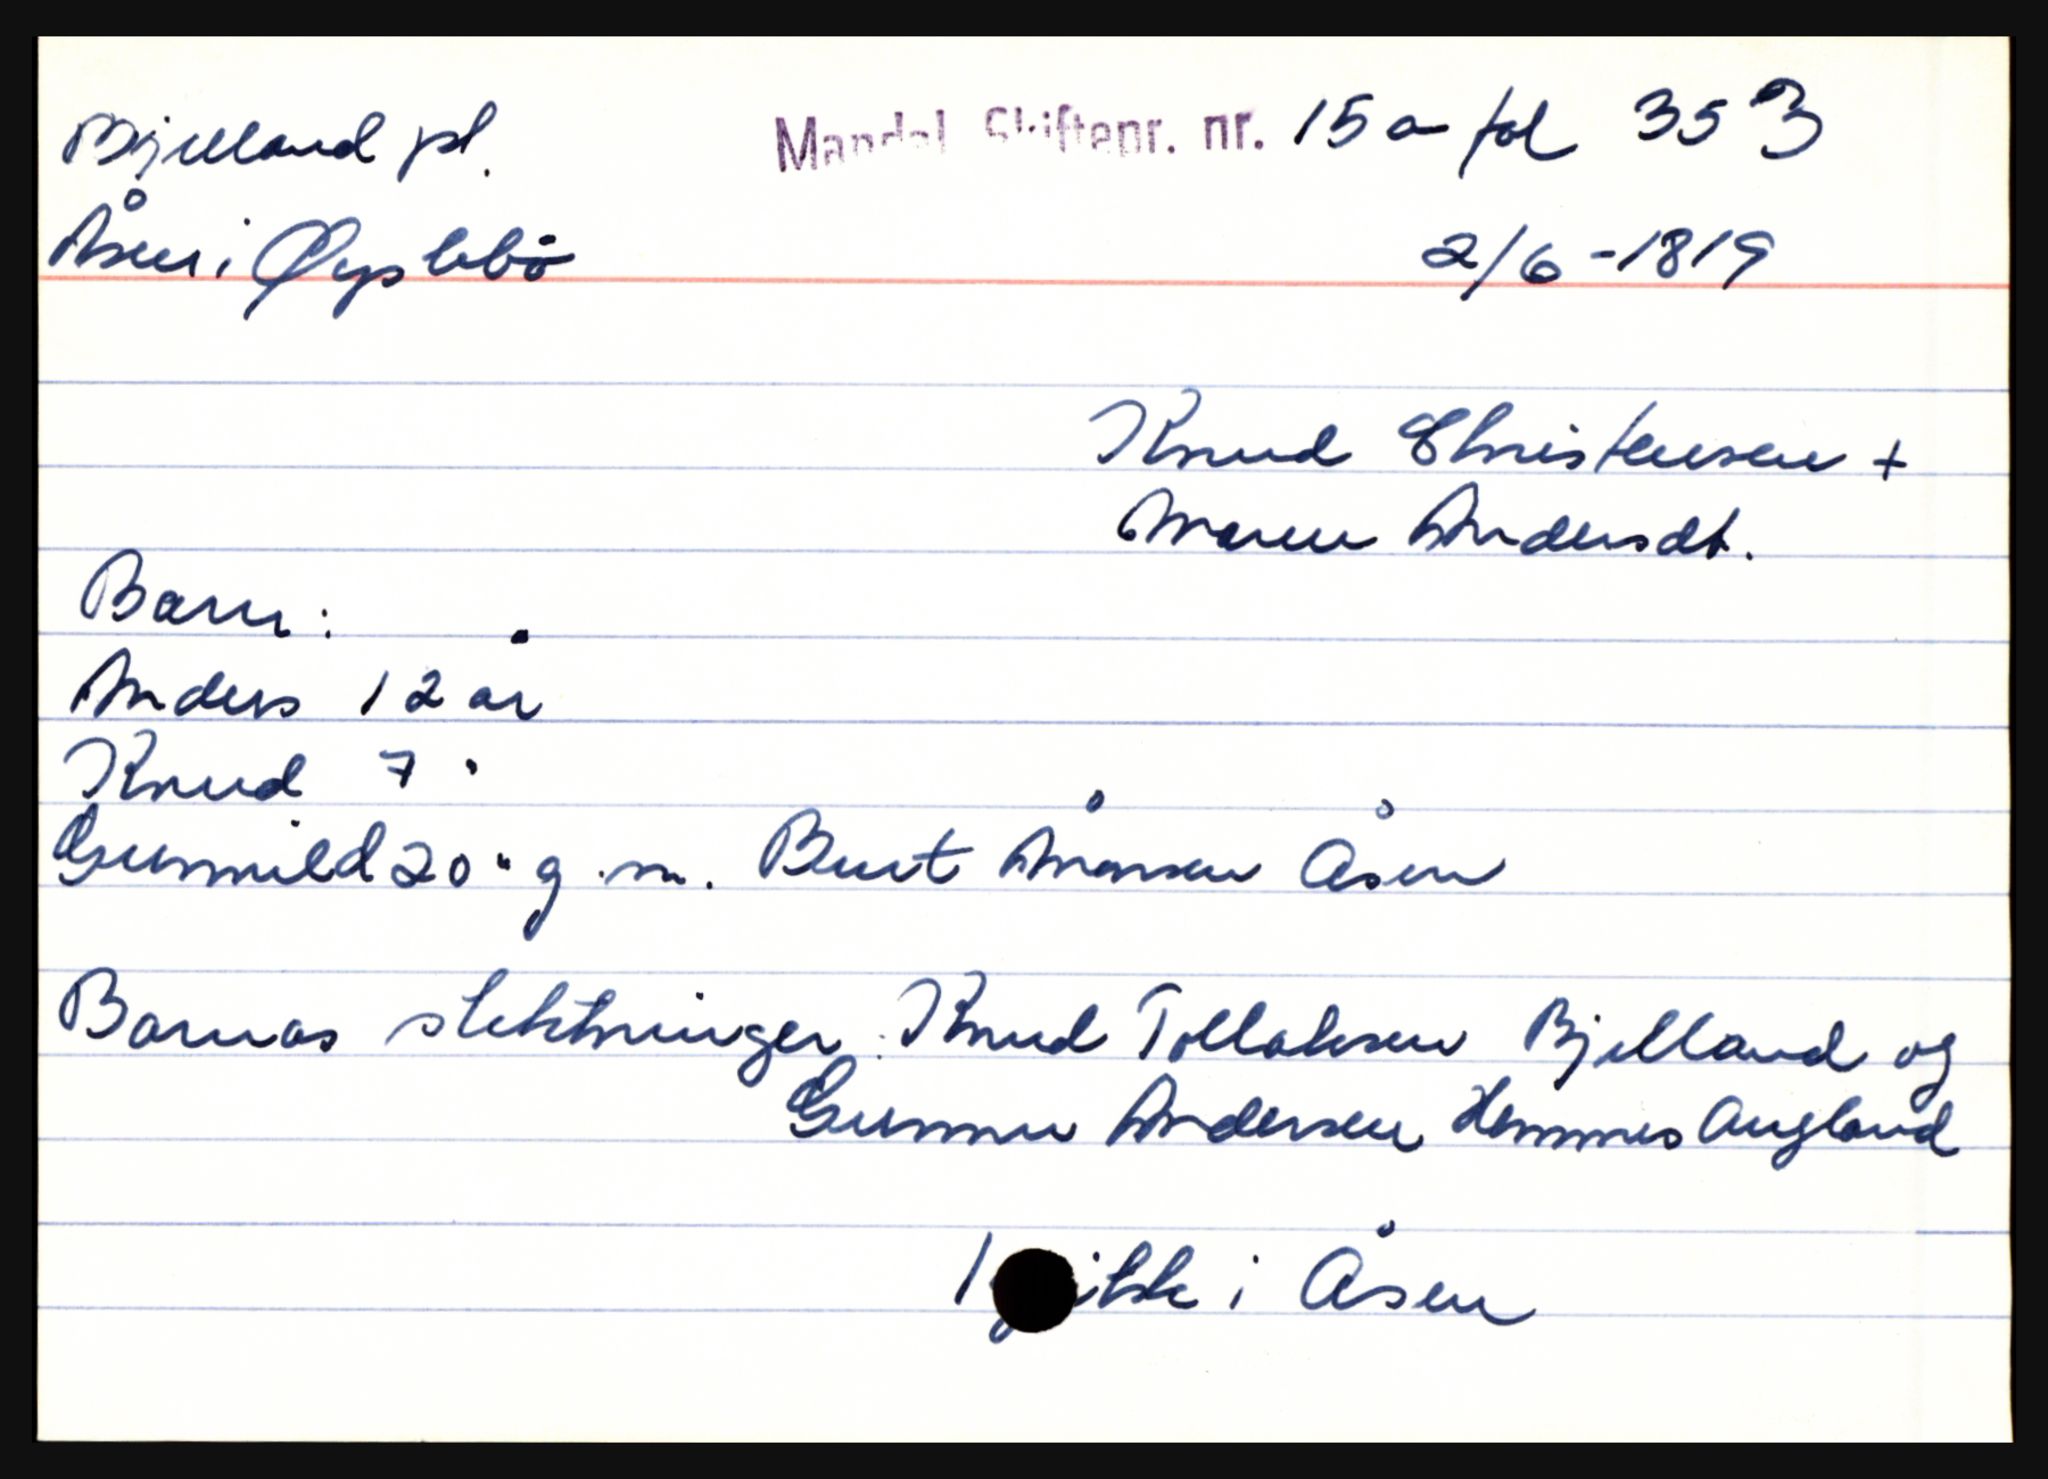 Bjelland pl. Mandal Skiftepr. nr. 15 a fol 353
Åsen i Øyslebö 2/6 - 1819
Knud Christensen +
Maren Andersdt.
Barn:
Anders 12 år
Knud 7 "
Gunnild 20 " g. m. Berut Åmonsen Åsen
Barnas slektninger: Knud Tollaksen Bjelland og
Gunner Andersen Hemmes Augland
1 gikk i Åsen